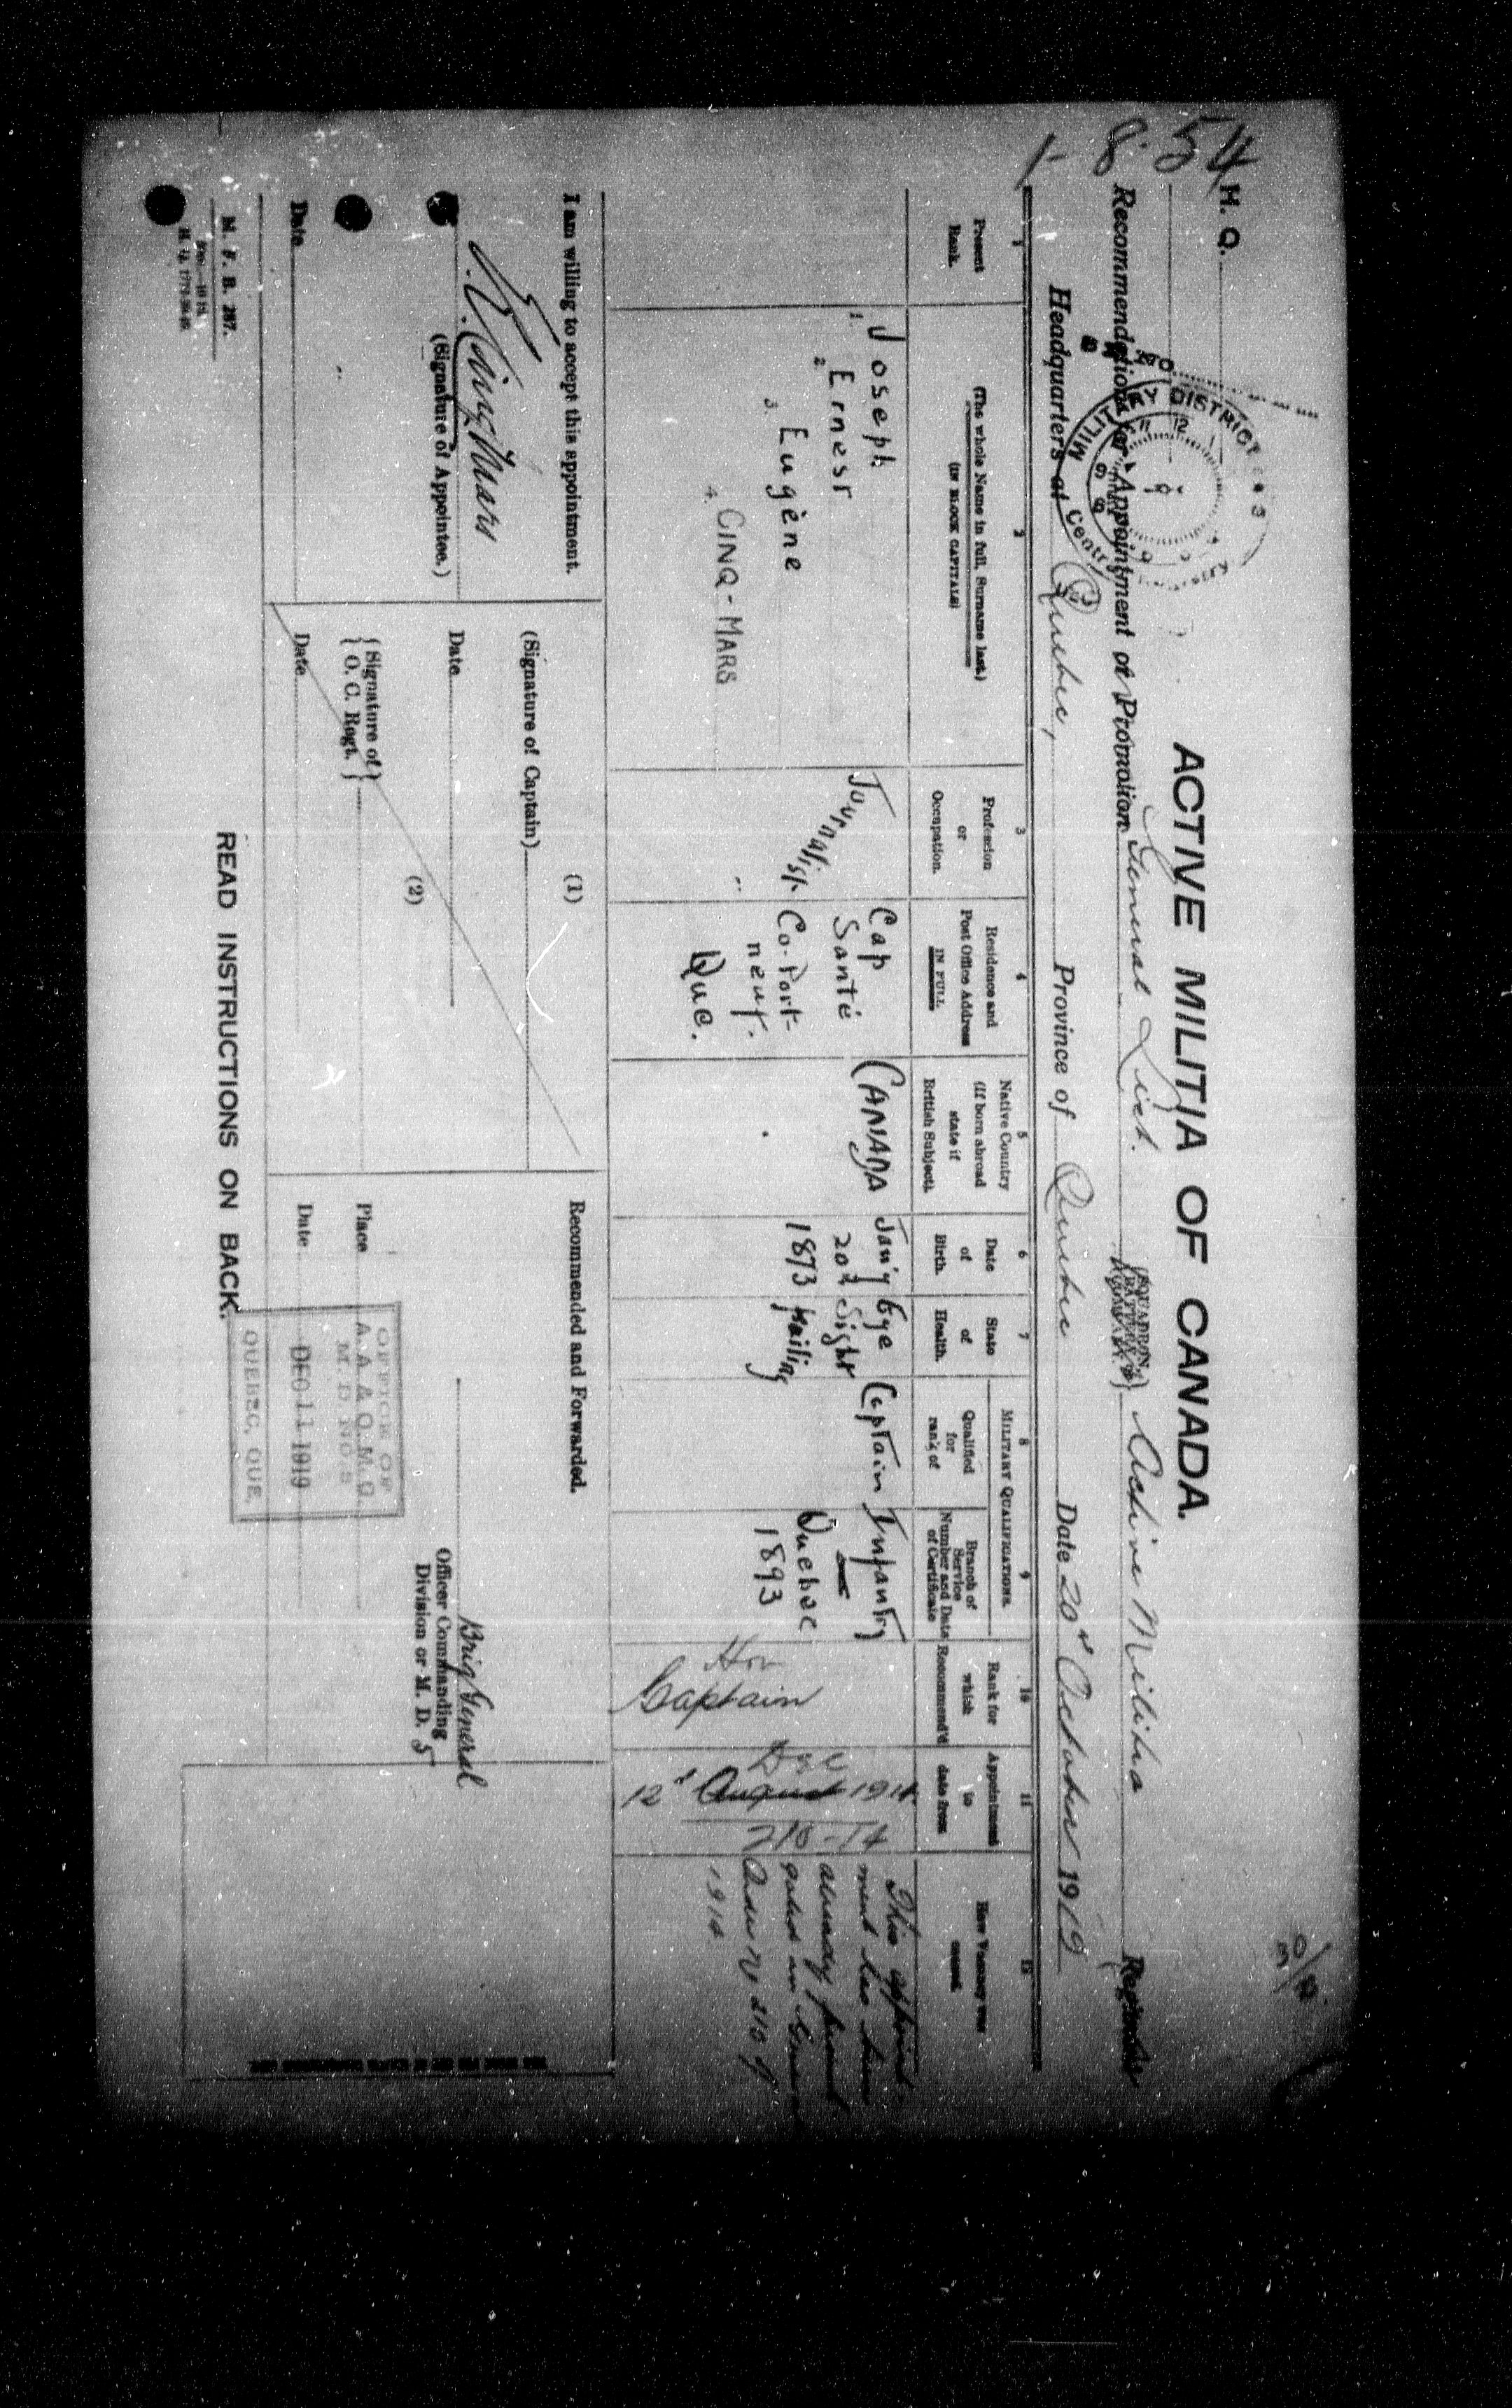 8-54
1-
H. Q.
MILITARY DISTRICT
Central Registry
ACTIVE MILITIA OF CANADA.
Recommendations for Appointment or Promotion General List.
(SQUADRON, BATTERY, COMPANY) Active Militia Regiment
Headquarters at Quebec, Province of Quebec Date 20th October 1919
1
Present
Rank.
2
(The whole Name in full, Surname last.)
(IN BLOCK CAPITALS)
3
Profession
or
Occupation.
4
Residence and
Post Office Address
IN FULL
5
Native Country
(If born abroad
state if
British Subject).
6
Date
of
Birth.
7
State
of
Health.
MILITARY QUALIFICATIONS.
8
Qualified
for
rank of
9
Branch of
Service
Number and Date
of Certificate
10
Rank for
which
Recommend'd
11
Appointment
to
date from
12
How Vacancy was
caused.
1. Joseph
2. Ernest
3. Eugène
4. CINQ-MARS
Journalist
Cap
Santé
Co. Port-
neuf.
Que.
CANADA
Jan'y
20th
1873
Eye
Sight
Failing
Captain
Infantry
Quebec
1893
Hon
Captain
Dec
12th August 1914
210-14
This appoint-
ment has been
already promul
gated in General
Order No 210 of
1914
I am willing to accept this appointment.
E. CinqMars
(Signature of Appointee.)
Date
(1)
(Signature of Captain)
Date
(2)
{Signature of}
{O. C. Regt.}
Date
Recommended and Forwarded.
Brig General
Officer Commanding
Division or M. D. 5
Place
Date
OFFICE OF
A. A. & Q. M. G.
M. D. NO. 5
DEC 11 1919
QUEBEC, QUE.
M. F. B. 287.
READ INSTRUCTIONS ON BACK.